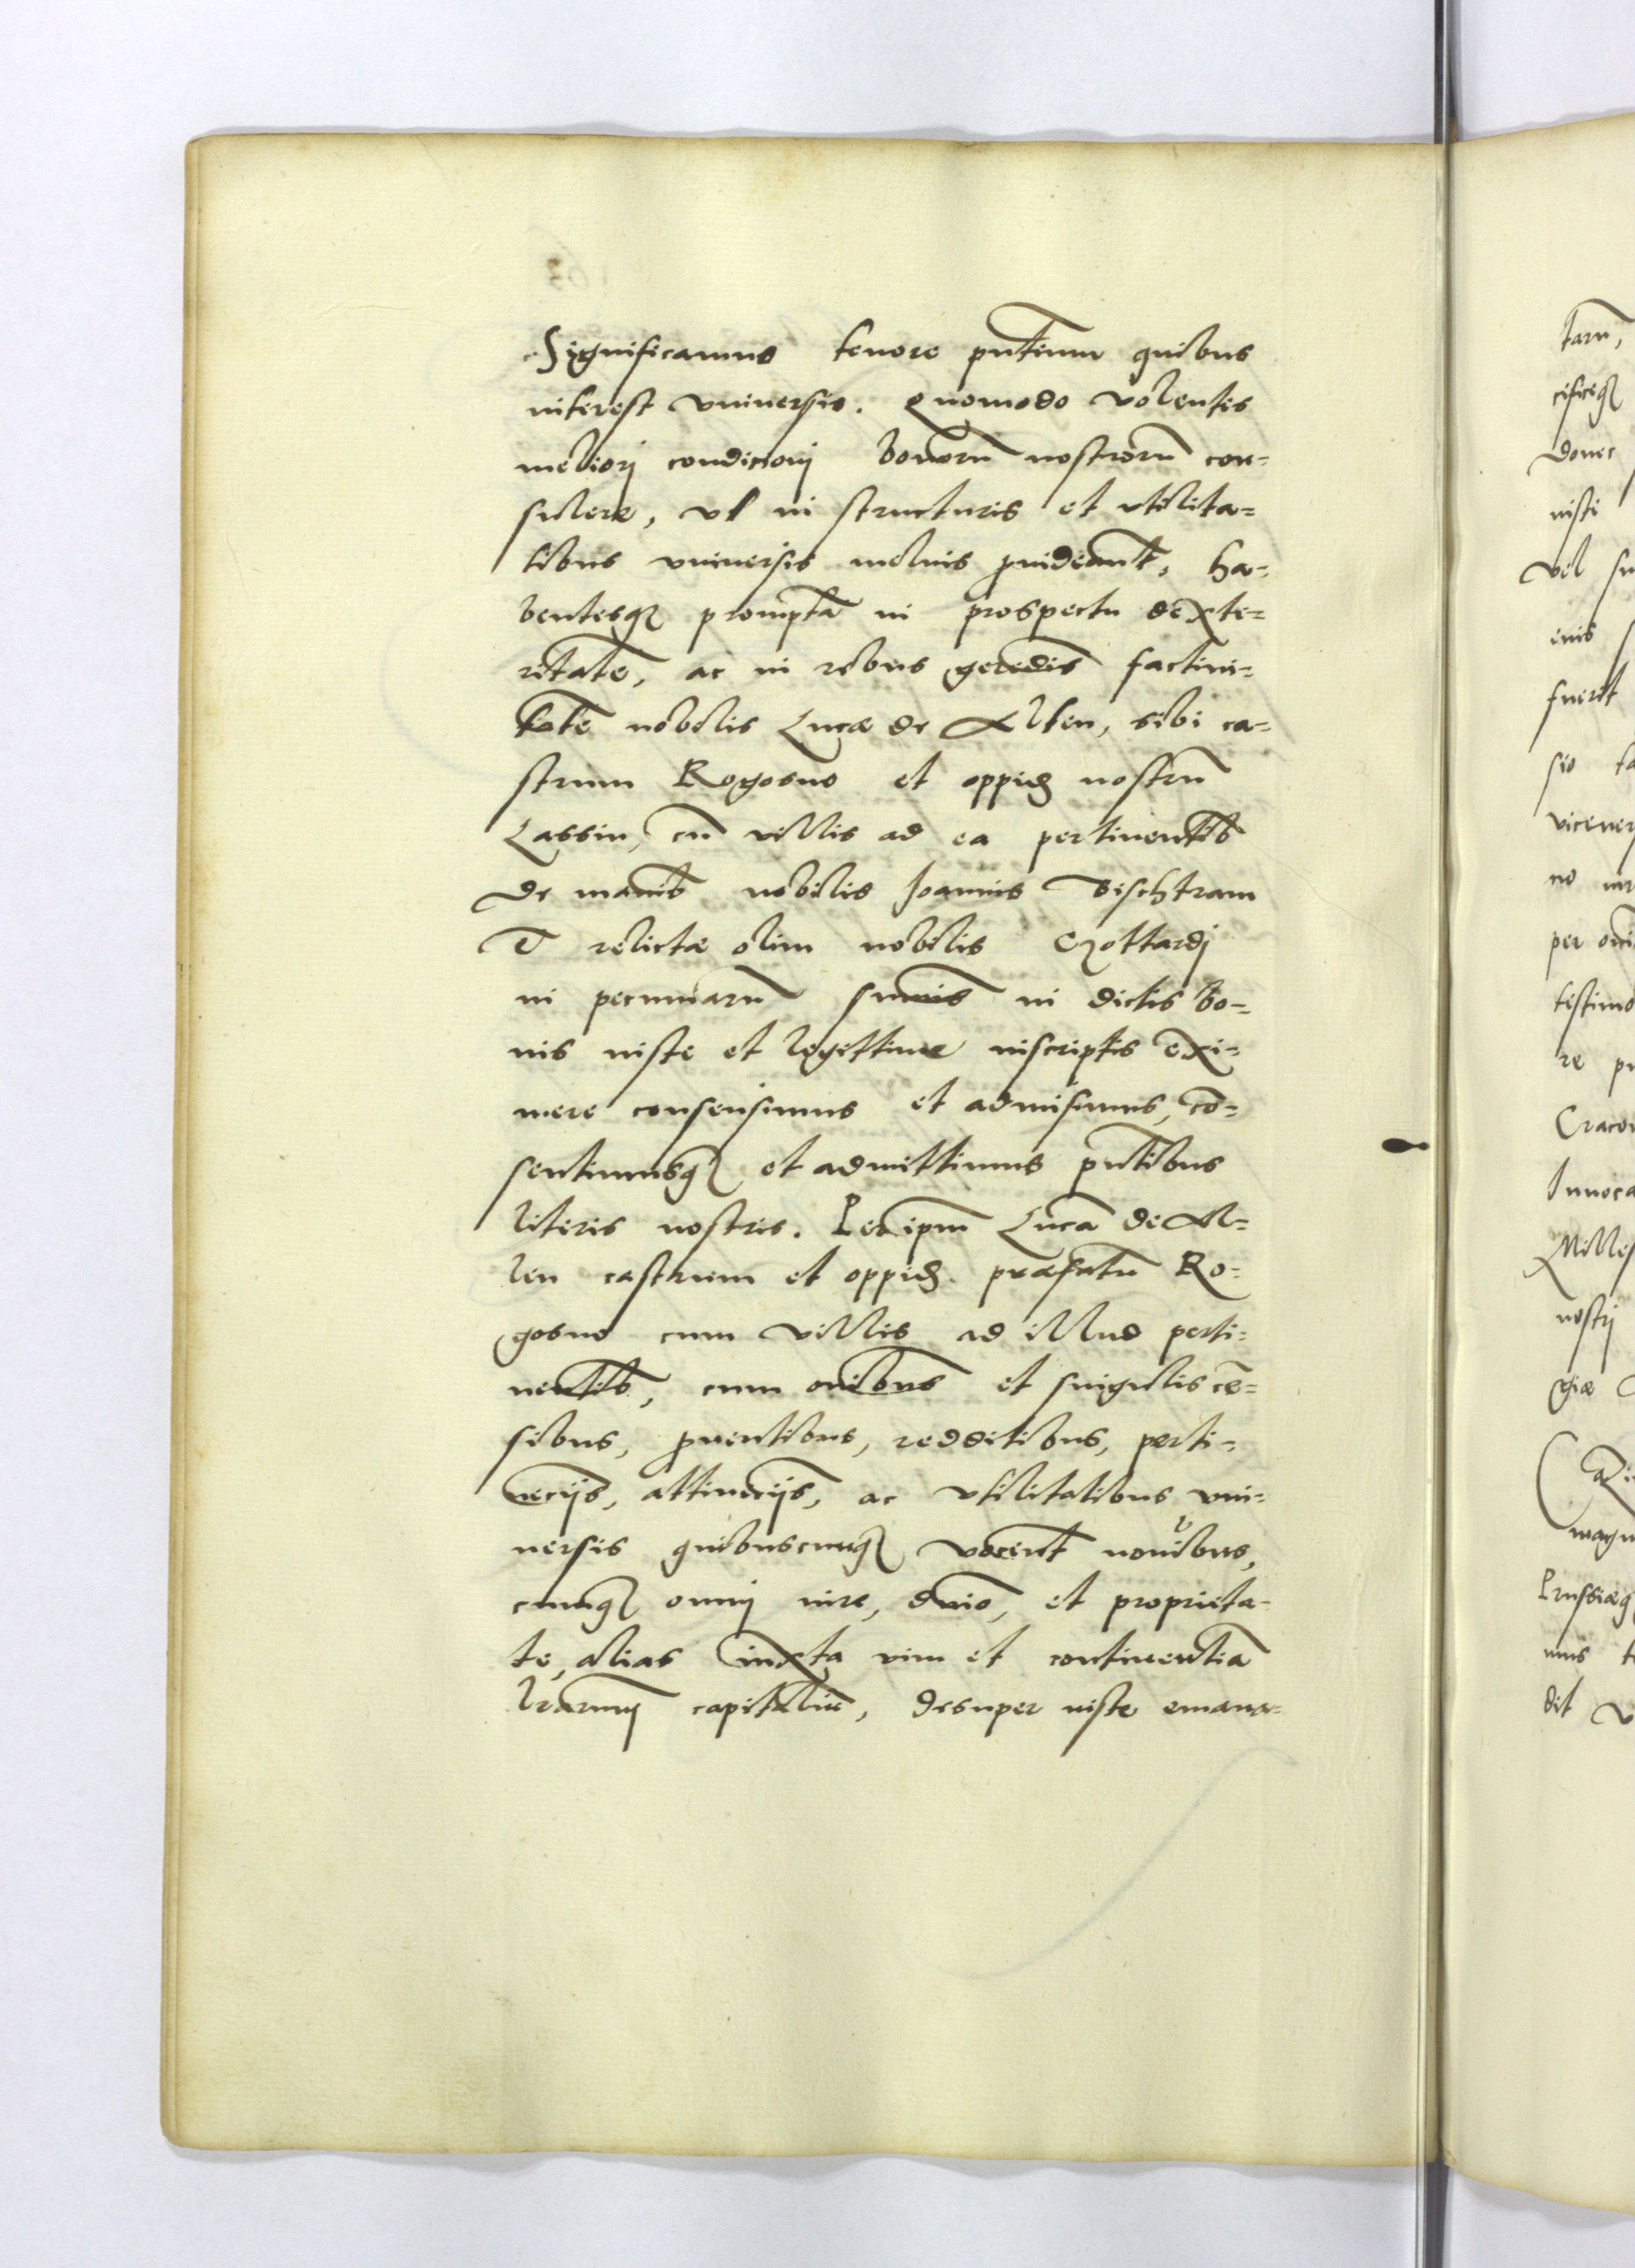 Significamus tenore pñtium quibus
interest vniuersis. Quomodo volentes
meliorj condicionj bonorũ nostrorũ con=
sulere, vt in structuris et vtilita=
tibus vniuersis melius prouideant, ha=
bentesq prompta in prospectu dexte=
ritatẽ, ac in rebus geredis factiui=
tate nobilis Lucæ de Alten, sibi ca=
strum Rogosno et oppid nostrũ
Lassin, cũ villis ad ea pertinentib
de manib nobilis Joannis Bischtram
relictæ olim nobilis Gottardj
in pecuniarũ sumis in dictis bo=
nis iuste et legittime inscriptis exi=
mere consensimus et admisimus, cõ=
sentimusq et admittimus pñtibus
literis nostris. ipm Lucã de Al=
ten castrum et oppid præfatũ Ro=
gosno cum villis ad illud perti=
nentib, cum oñibus et singulis cẽ=
sibus, prouentibus, redditibus, perti=
necijs, attinecijs, ac vtilitatibus vni=
uersis quibuscunq vocent nominibus,
cumq omnj iure, dñio, et proprieta=
te, alias iuxta vim et continentiã
lrarum capitaliũ, desuper iuste emana=
tarũ,
cificeq
donec
nisti
vel su
eius
fuerit
sio ta
viceuer
no
per
testimo
re
Craco
Inuoca
Milles
nostrj
giæ

magn
Prussiæq
mus t
dit v